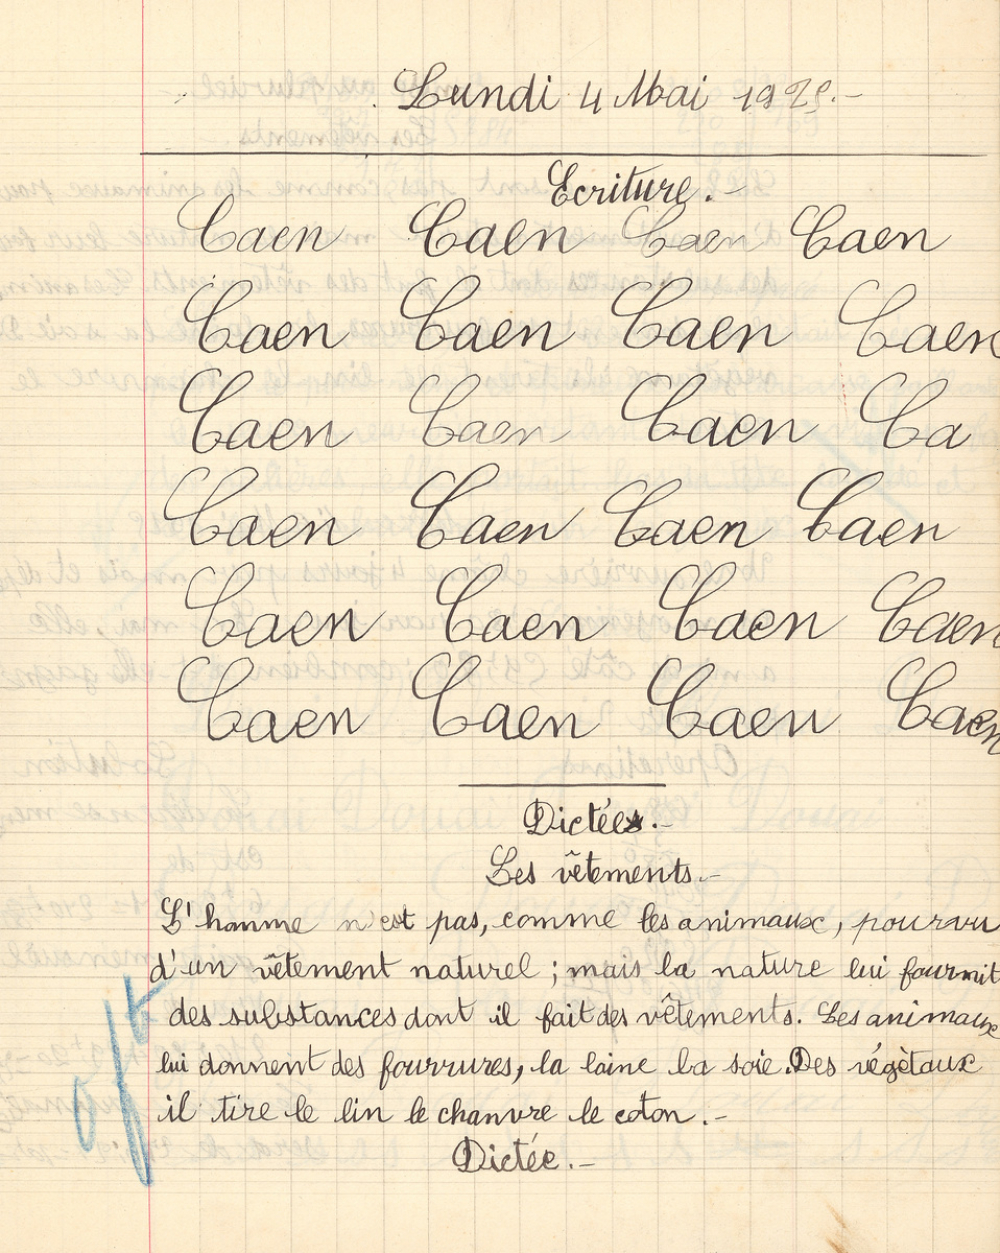 Lundi 4 Mai 1925.-
Ecriture.-
Caen Caen Caen Caen
Caen Caen Caen Caen
Caen Caen Caen Ca
Caen Caen Caen Caen
Caen Caen Caen Caen
Caen Caen Caen Caen
Dictée.-
Les vêtements.-
L'homme n'est pas, comme les animaux, pourvu
d'un vêtement naturel ; mais la nature lui fournit
des substances dont il fait des vêtements. Les animaux
lui donnent des fourrures, la laine la soie. Des végétaux
il tire le lin le chanvre le coton.-
Dictée.-